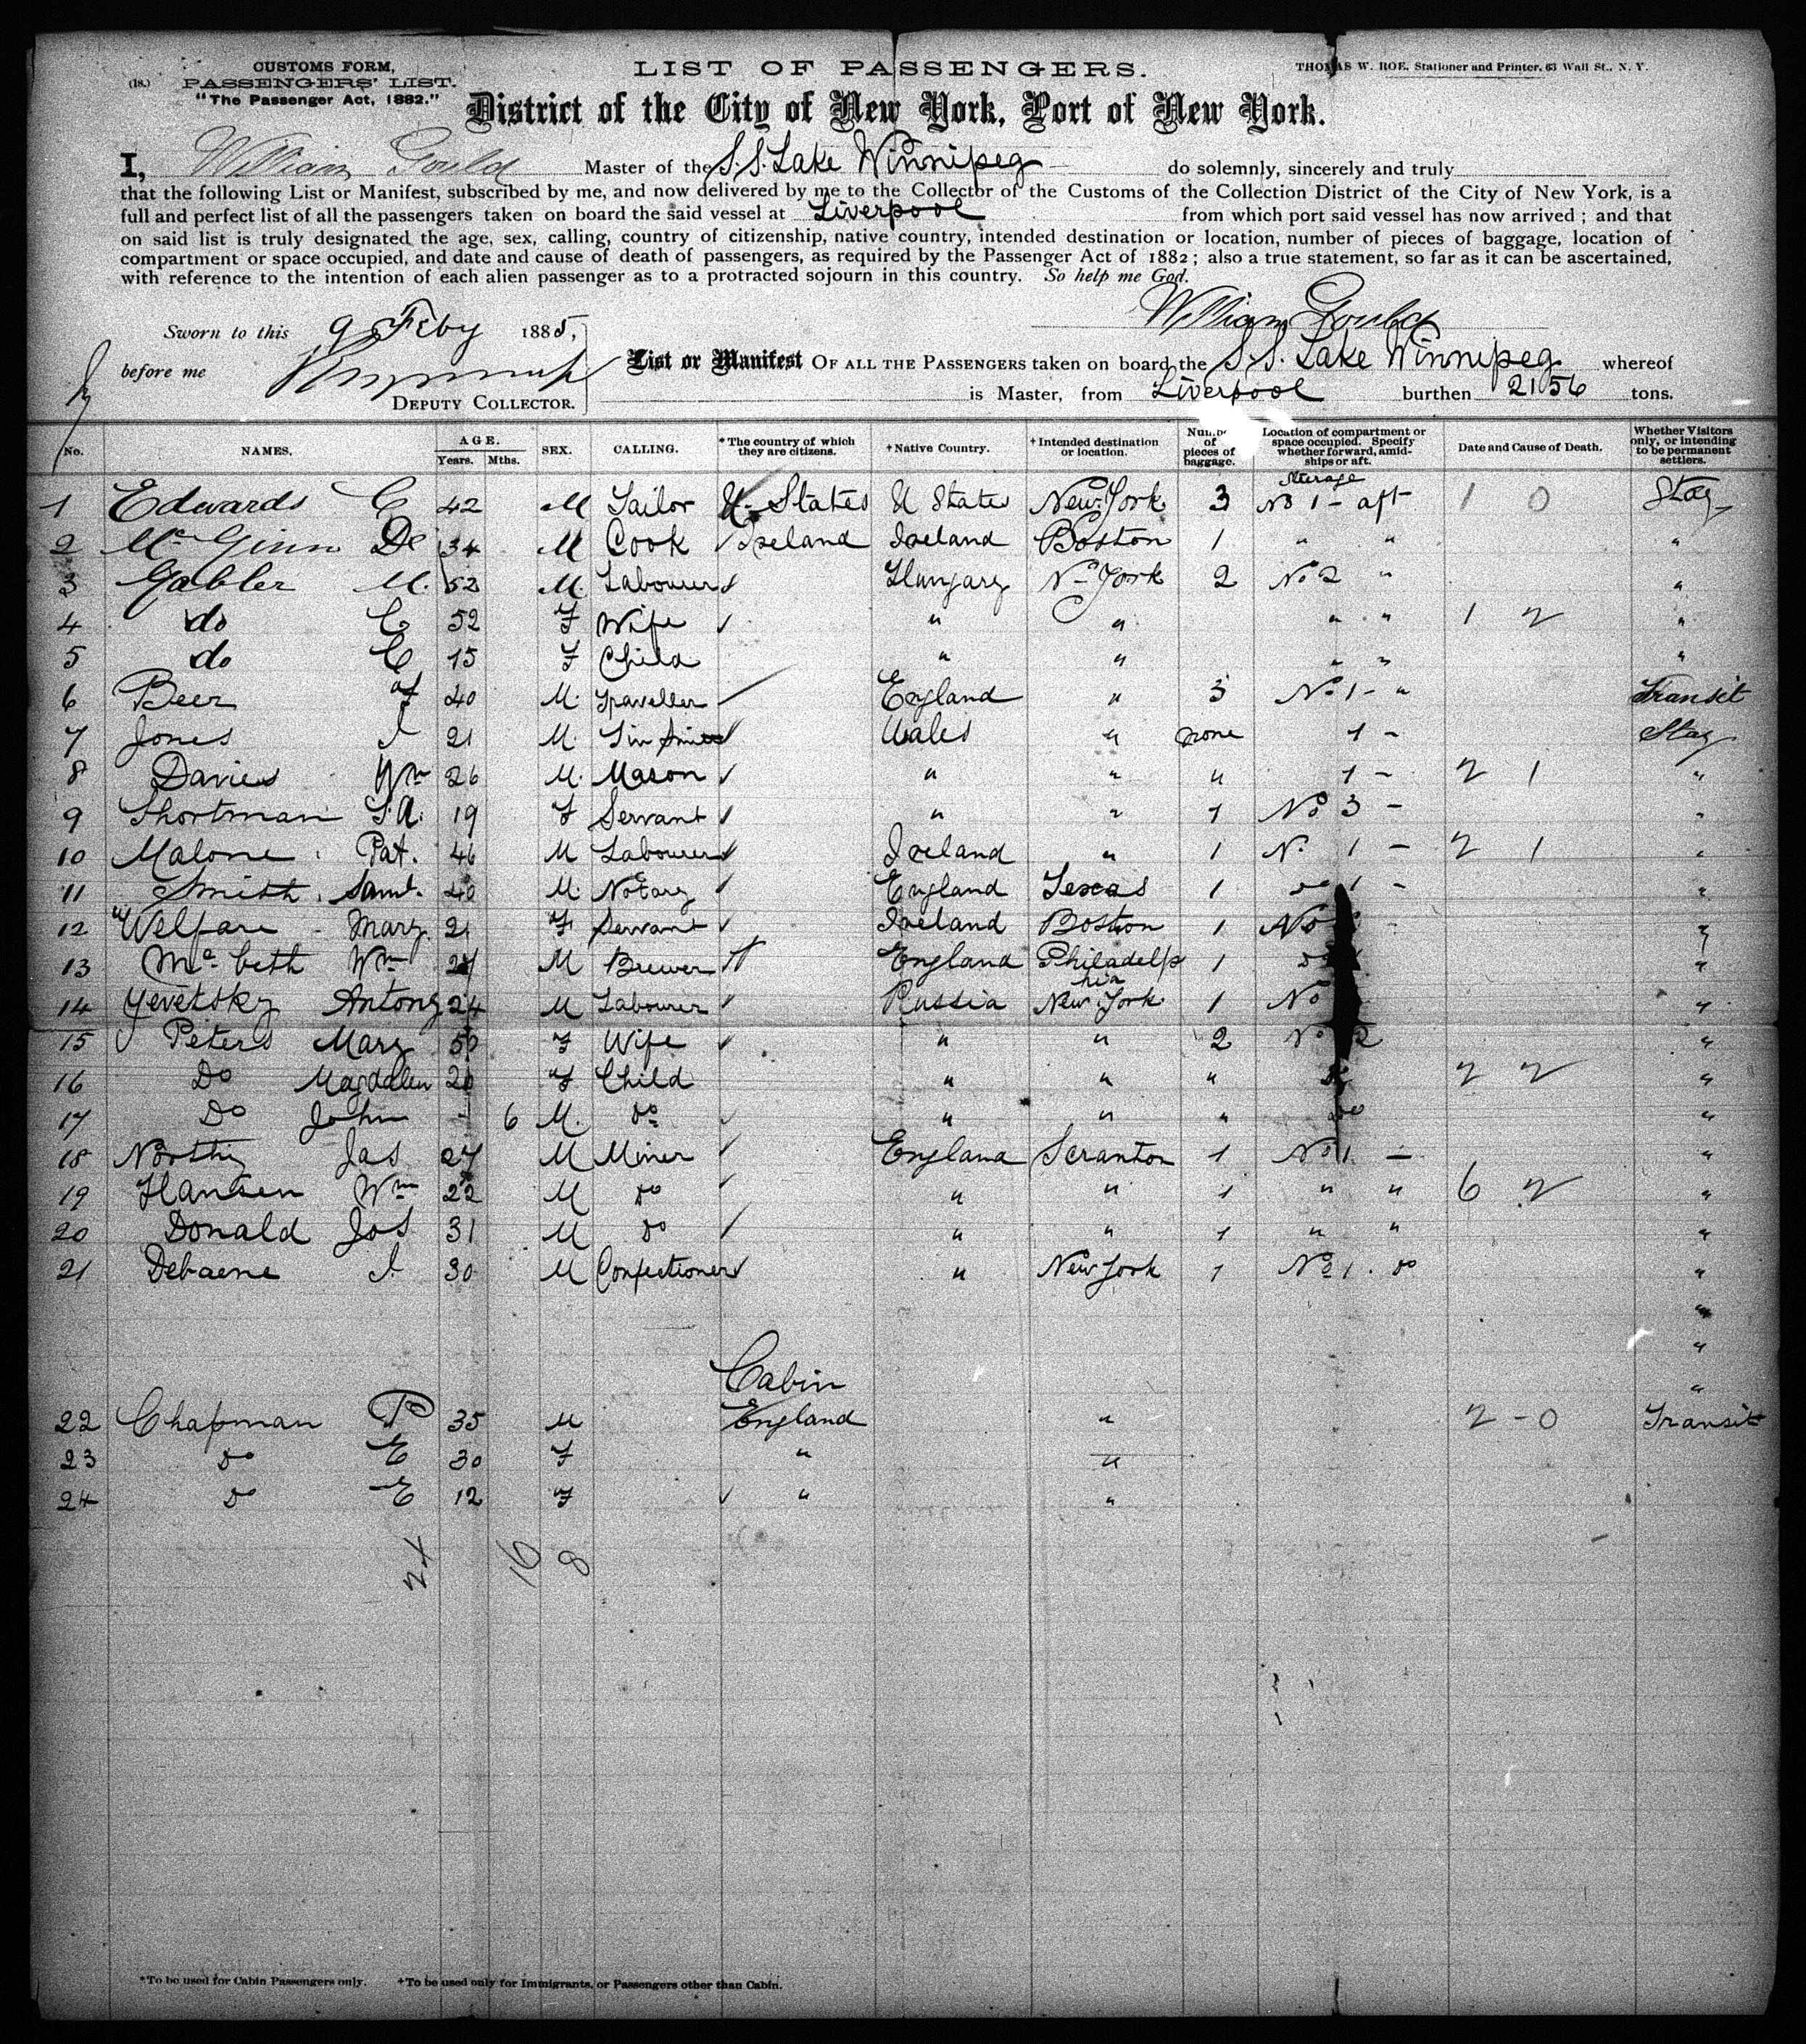 CUSTOMS FORM,
(18.) PASSENGERS' LIST.
"The Passenger Act, 1882."
LIST OF PASSENGERS.
THOMAS W. ROE, Stationer and Printer, 63 Wall St., N. Y.
District of the City of New York, Port of New York.
I, William Gould Master of the S.S. Lake Winnipeg do solemnly, sincerely and truly
that the following List or Manifest, subscribed by me, and now delivered by me to the Collector of the Customs of the Collection District of the City of New York, is a
full and perfect list of all the passengers taken on board the said vessel at Liverpool from which port said vessel has now arrived; and that
on said list is truly designated the age, sex, calling, country of citizenship, native country, intended destination or location, number of pieces of baggage, location of
compartment or space occupied, and date and cause of death of passengers, as required by the Passenger Act of 1882; also a true statement, so far as it can be ascertained,
with reference to the intention of each alien passenger as to a protracted sojourn in this country. So help me God.
William Gould
Sworn to this 9 Feby 1885,
before me
DEPUTY COLLECTOR.
List or Manifest OF ALL THE PASSENGERS taken on board the S.S. Lake Winnipeg whereof
is Master, from Liverpool burthen 2156 tons.
No. NAMES. AGE. Years. Mths. SEX. CALLING. * The country of which they are citizens. + Native Country. + Intended destination or location. Number of pieces of baggage. Location of compartment or space occupied. Specify whether forward, amidships or aft. Date and Cause of Death. Whether Visitors only, or intending to be permanent settlers.
Sterage
1 Edwards C 42 M Tailor U. States U States New York 3 No 1 - aft 1 0 Stay
2 McGinn De 34 M Cook Ireland Ireland Boston 1 " " "
3 Gabler M. 52 M. Labourer Hungary N- York 2 No 2 " "
4 do C 52 F Wife " " " " 1 2 "
5 do C 15 F Child " " " " "
6 Beer 40 M. Traveller England " 3 No 1 - " Transit
7 Jones J 21 M. Tin Smith Wales " none 1 - Stay
8 Davies Wm 26 M. Mason " " " 1 - 2 1 "
9 Shortman S.A. 19 F Servant " " 1 No 3 - "
10 Malone Pat. 46 M Labourer Ireland " 1 N. 1 - 2 1 "
11 Smith, Saml. 40 M. Notary England Texas 1 do 1 - "
12 Welfare - Mary 21 F Servant Ireland Boston 1 No "
13 McBeth Wm M Brewer England Philadelphia 1 "
14 Yevetsky Antony 24 M Labourer Russia New York 1 No "
15 Peters Mary 50 F Wife " " 2 No 2 "
16 Do Magdalen 20 F Child " " " 2 2 "
17 Do John - 6 M. do " " " do "
18 Northy Jas 27 M Miner England Scranton 1 No 1 - "
19 Hansen Wm 22 M do " " 1 " " 6 2 "
20 Donald Jos 31 M do " " 1 " " "
21 Debaene J. 30 M Confectioner " New York 1 No 1. do "
"
"
Cabin "
22 Chapman P 35 M England " 2 - 0 Transit
23 do E 30 F " "
24 do E 12 F " "
24 16 8
*To be used for Cabin Passengers only. +To be used only for Immigrants, or Passengers other than Cabin.